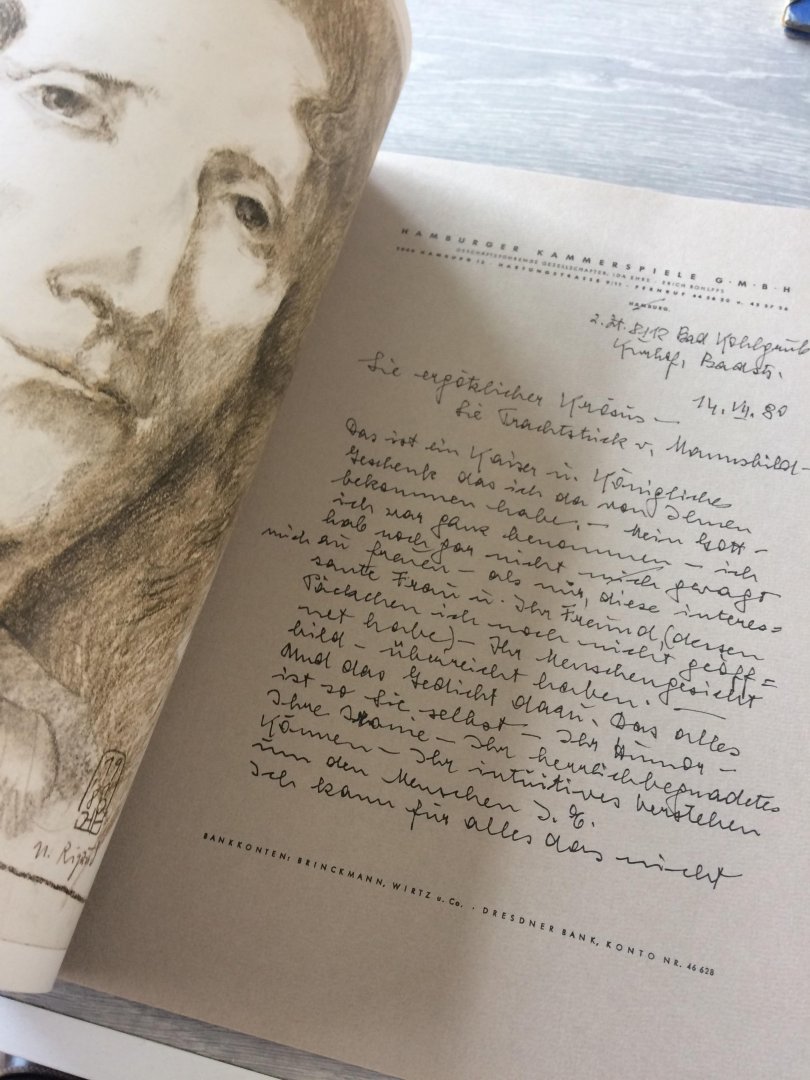 HAMBURGER KAMMERSPIELE G·M·B·H
GESCHÄFTSFÜHRENDE GESELLSCHAFTER: IDA EHRE · ERICH ROHLFFS
2000 HAMBURG 13 · HARTUNGSTRASSE 9/11 · FERNRUF
HAMBURG,
z. Zt. 8112 Bad Kohlgrub
Kurhof, Badstr.
14. VII. 80
Sie ergötzlicher Krösus –
Sie Prachtstück v. Mannsbild –
Das ist ein Kaiser u. Königliches
Geschenk das ich da von Ihnen
bekommen habe. – Mein Gott –
ich war ganz benommen – ich
hab noch gar nicht gewagt
mich zu freuen – als mir, diese interes=
sante Frau u. Ihr Freund, (dessen
Päckchen ich noch nicht geöff=
net habe) – Ihr Menschengesicht
bild – überreicht haben. –
Und das Gedicht dazu. Das alles
ist so Sie selbst – Ihr Humor –
Ihre Ironie – Ihr herrlichbegnadetes
Können – Ihr intuitives Verstehen
um den Menschen J. E.
Ich kann für alles das nicht
BANKKONTEN: BRINCKMANN, WIRTZ u. Co. · DRESDNER BANK, KONTO NR. 46 628